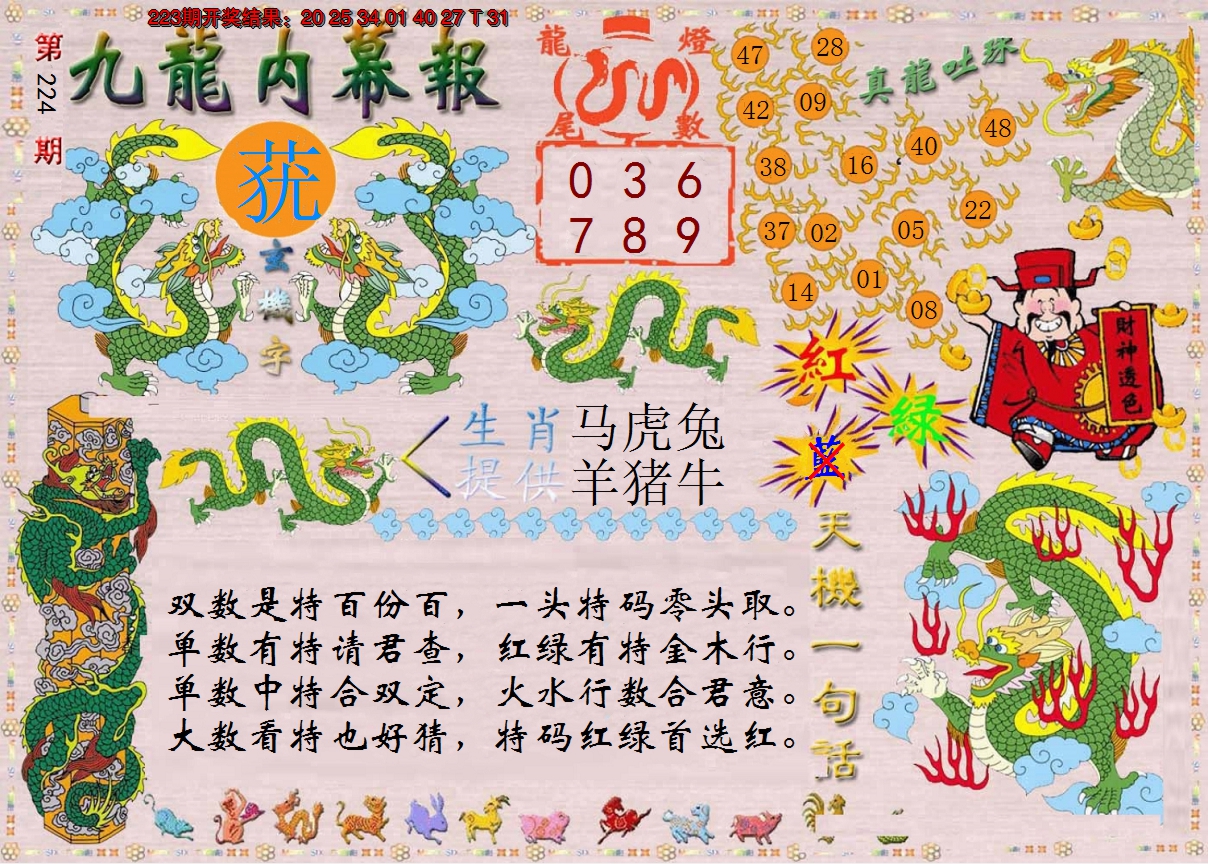 223期开奖结果：20 25 34 01 40 27 T 31
第224期
九龍内幕報
玄機字
龍燈尾數
0 3 6
7 8 9
真龍吐珠
47 28
42 09
40 48
38 16
22
37 02 05
14 01
08
紅
绿
藍
財神透色
生肖提供
马虎兔
羊猪牛
天機一句話
双数是特百份百，一头特码零头取。
单数有特请君查，红绿有特金木行。
单数中特合双定，火水行数合君意。
大数看特也好猜，特码红绿首选红。